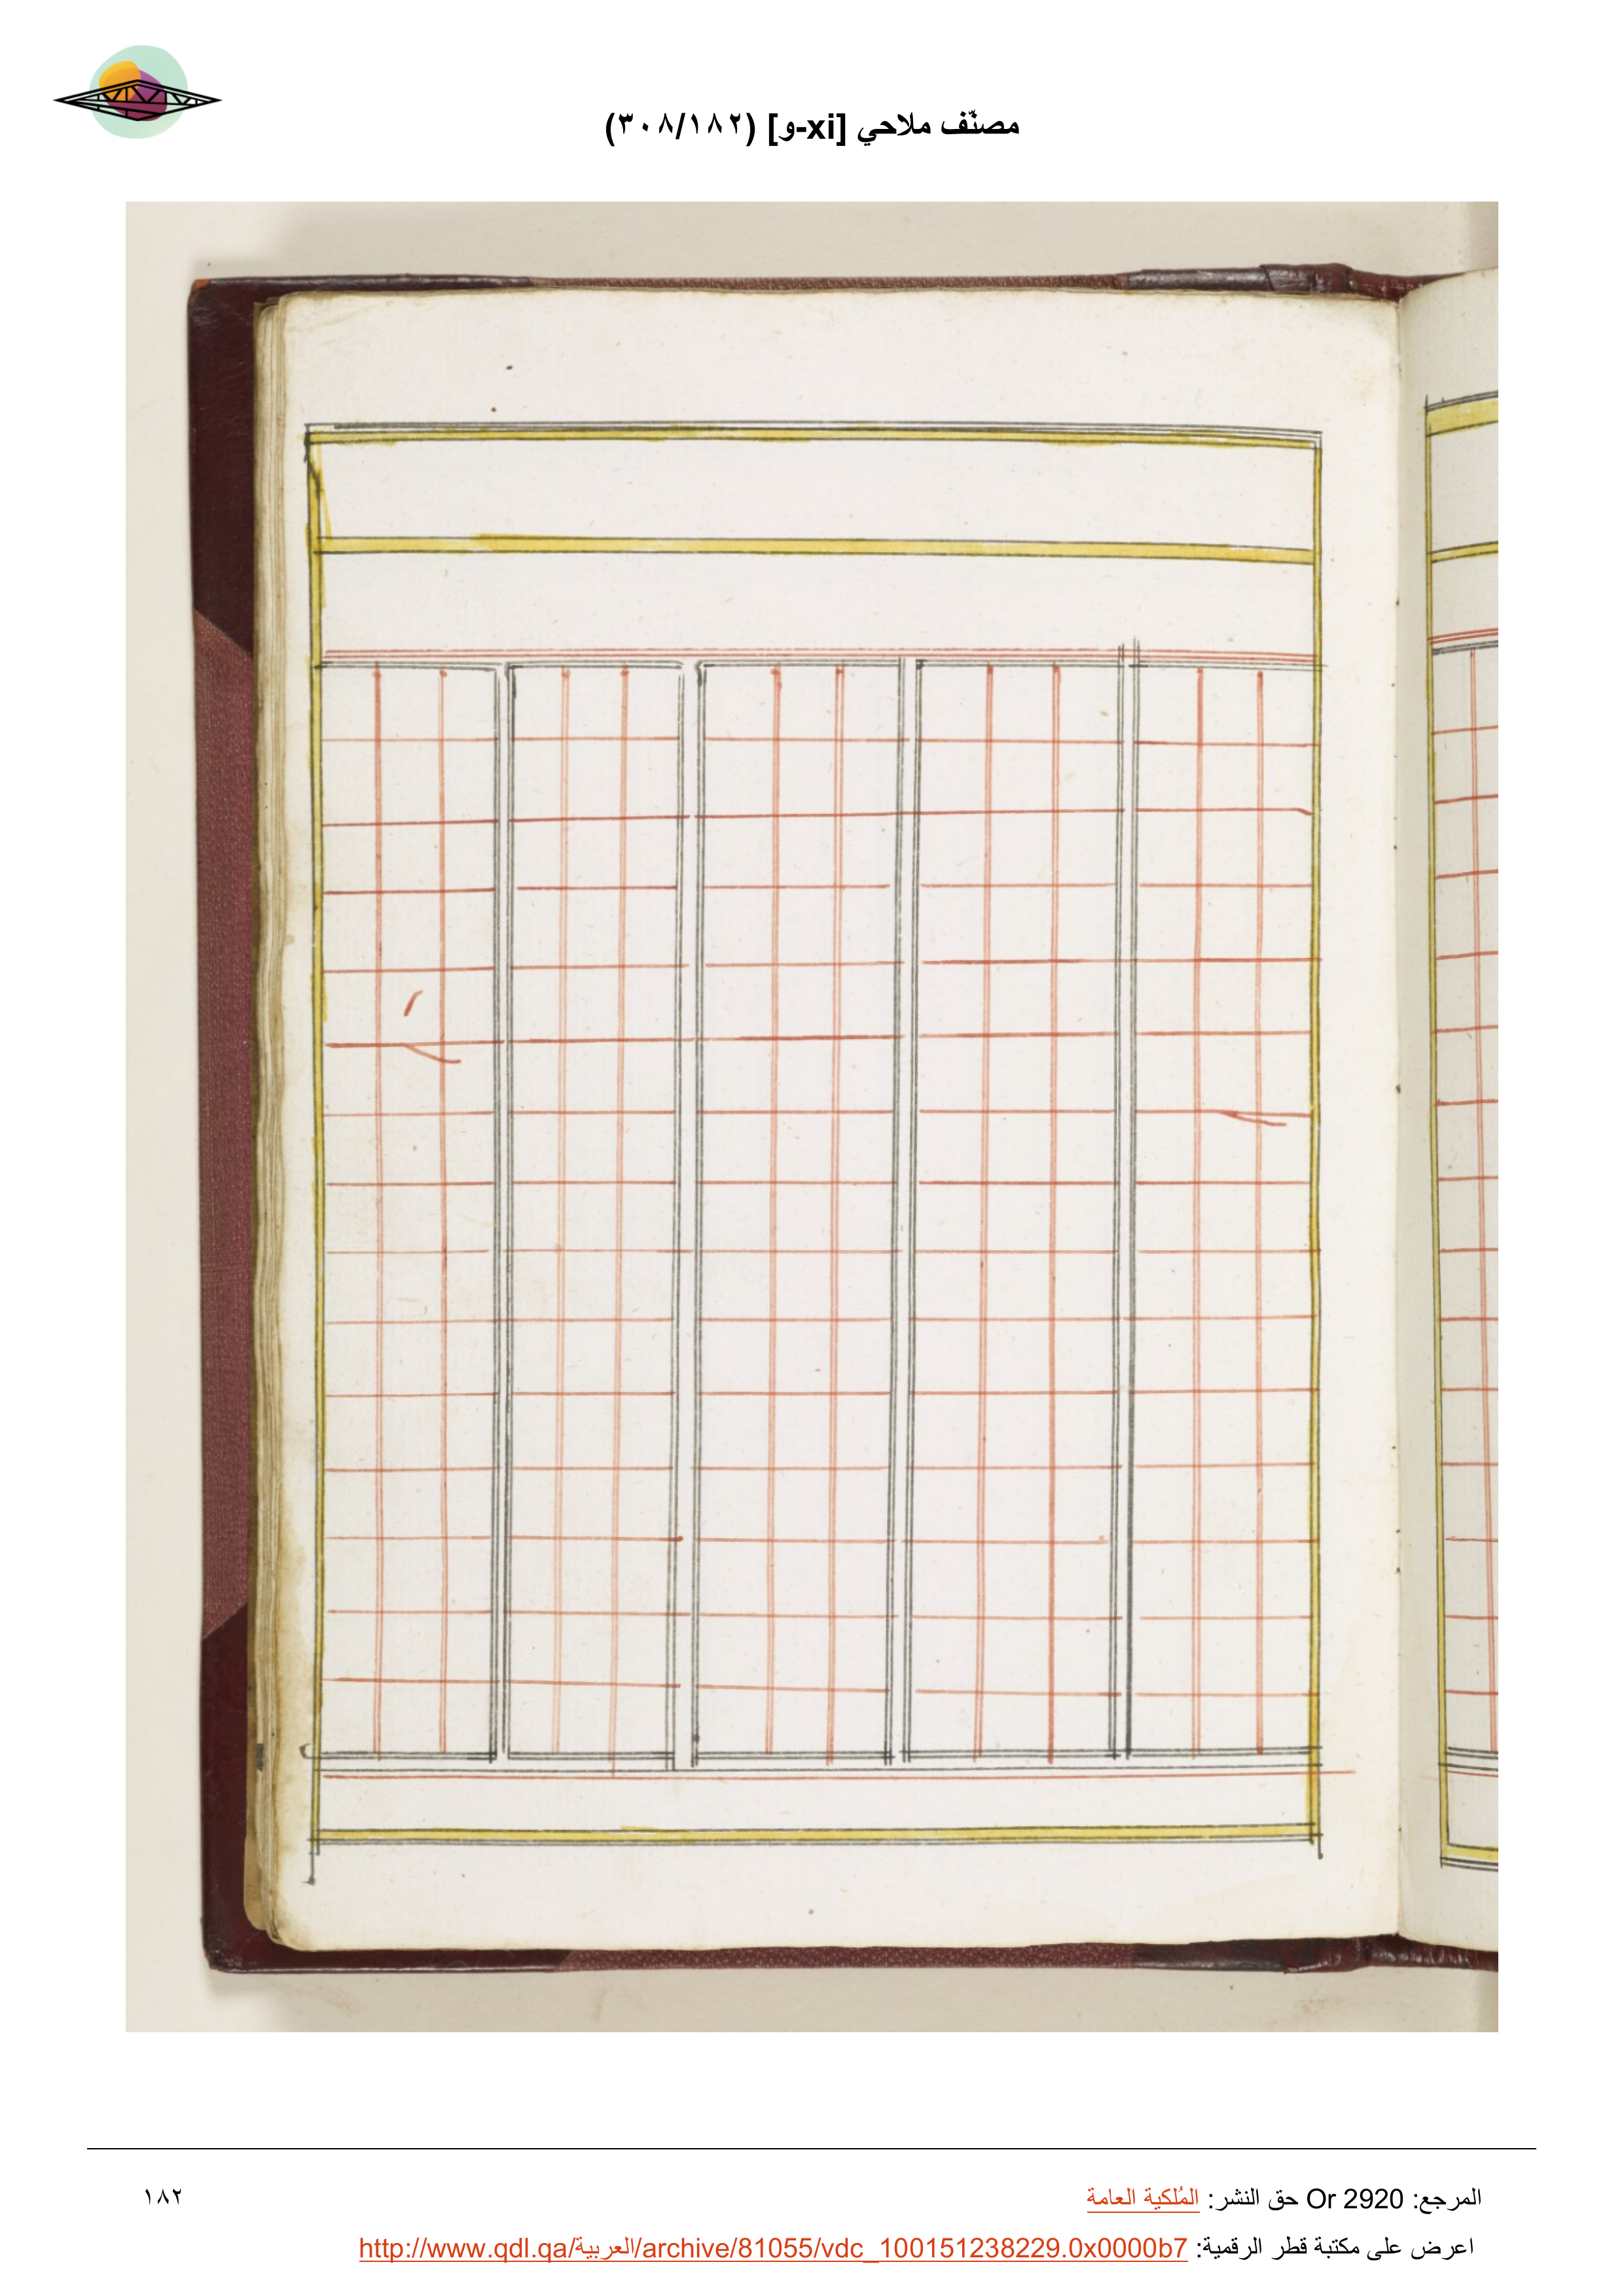 مصنّف ملاحي [xi-و] (٣٠٨/١٨٢)
المرجع: Or 2920 حق النشر: المُلكية العامة
١٨٢
اعرض على مكتبة قطر الرقمية: http://www.qdl.qa/العربية/archive/81055/vdc_100151238229.0x0000b7